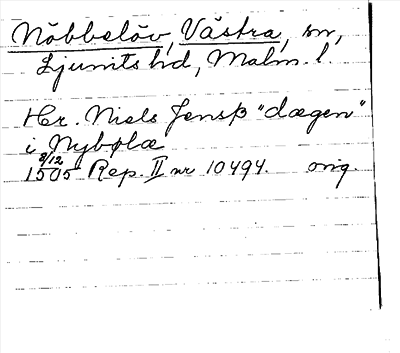 Nöbbelöv, Västra, sn,
Ljunits hd, Malm. l.
Her. Niels Jensß "dægen"
i Nybølæ
8/12
1505 Rep. II nr 10494. orig.